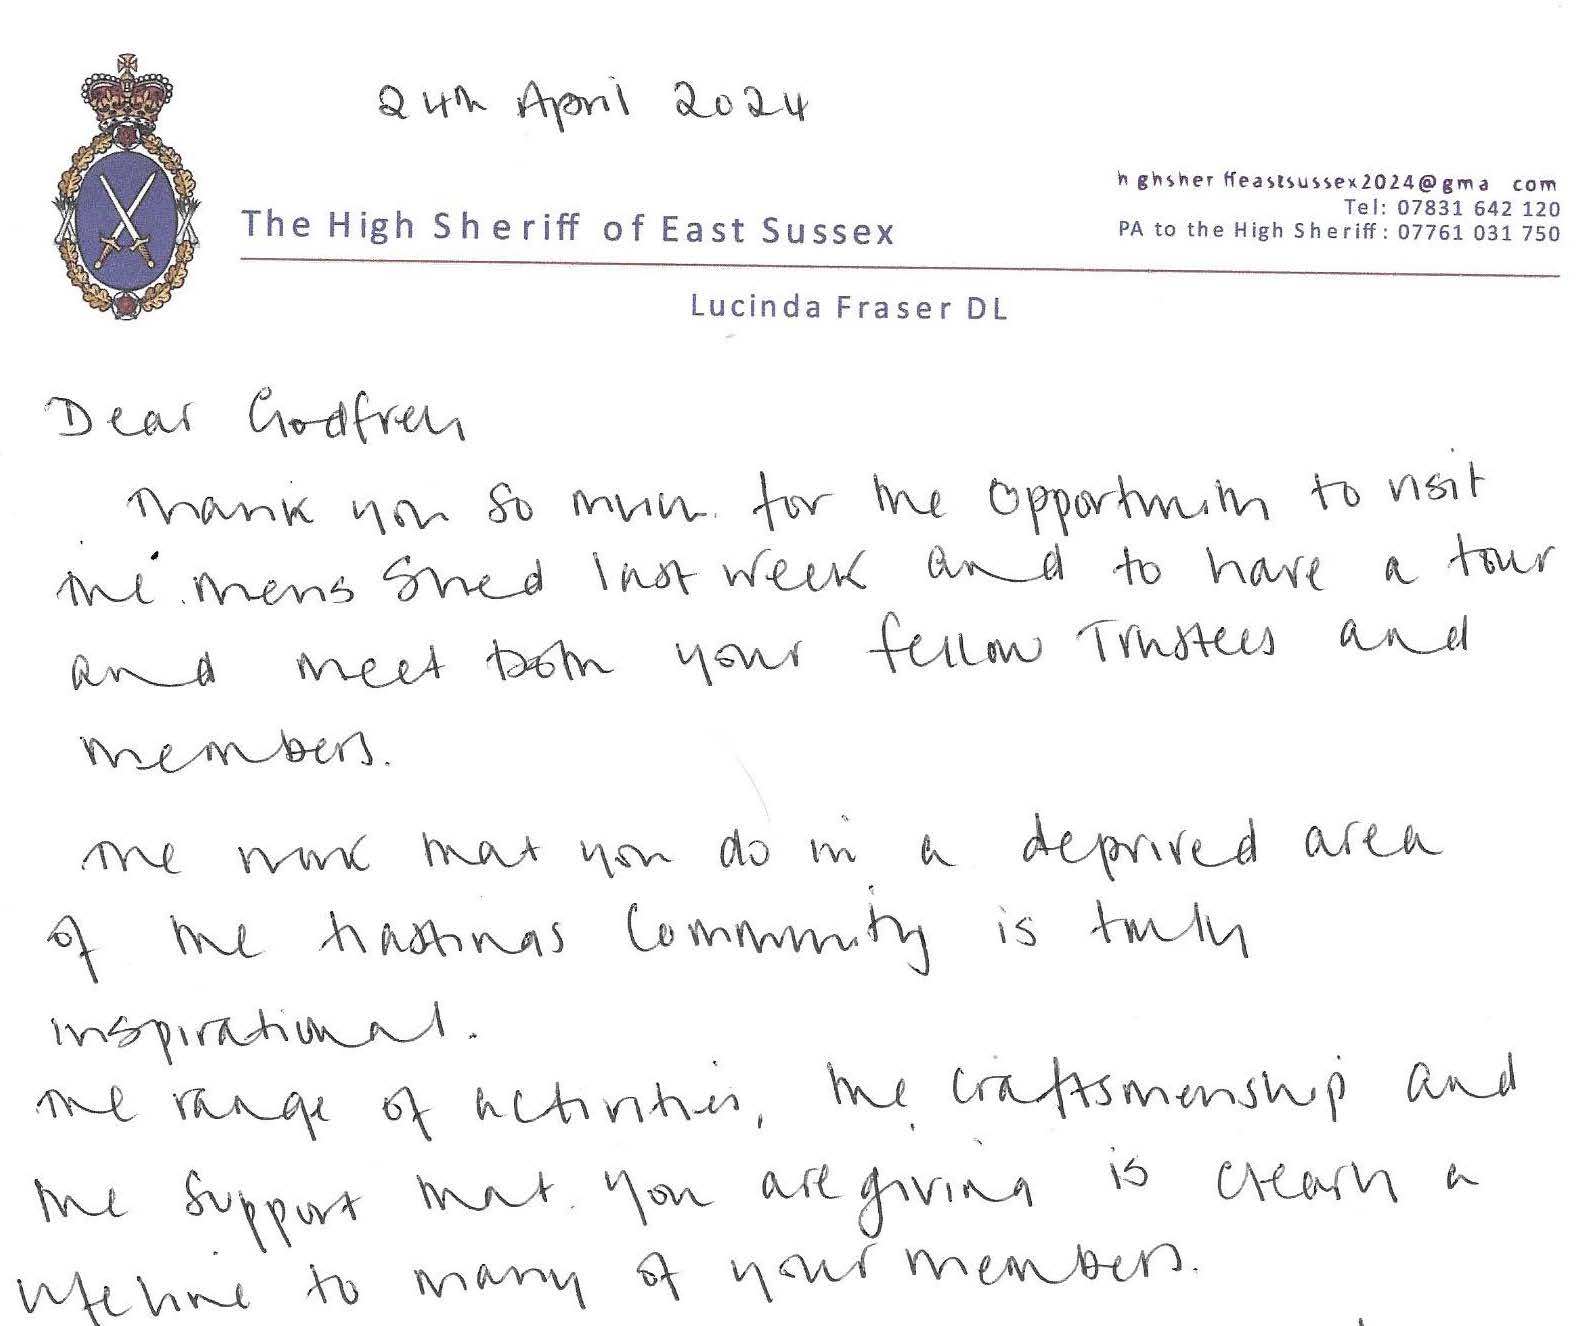 24th April 2024
h ghsher ffeastsussex2024@gma com
Tel: 07831 642 120
The High Sheriff of East Sussex
PA to the High Sheriff: 07761 031 750
Lucinda Fraser DL
Dear Godfrey
Thank you so much for the opportunity to visit
the mens Shed last week and to have a tour
and meet both your fellow Trustees and
members.
The work that you do in a deprived area
of the Hastings Community is truly
inspirational.
The range of activities, the craftsmenship and
the support that you are giving is clearly a
lifeline to many of your members.